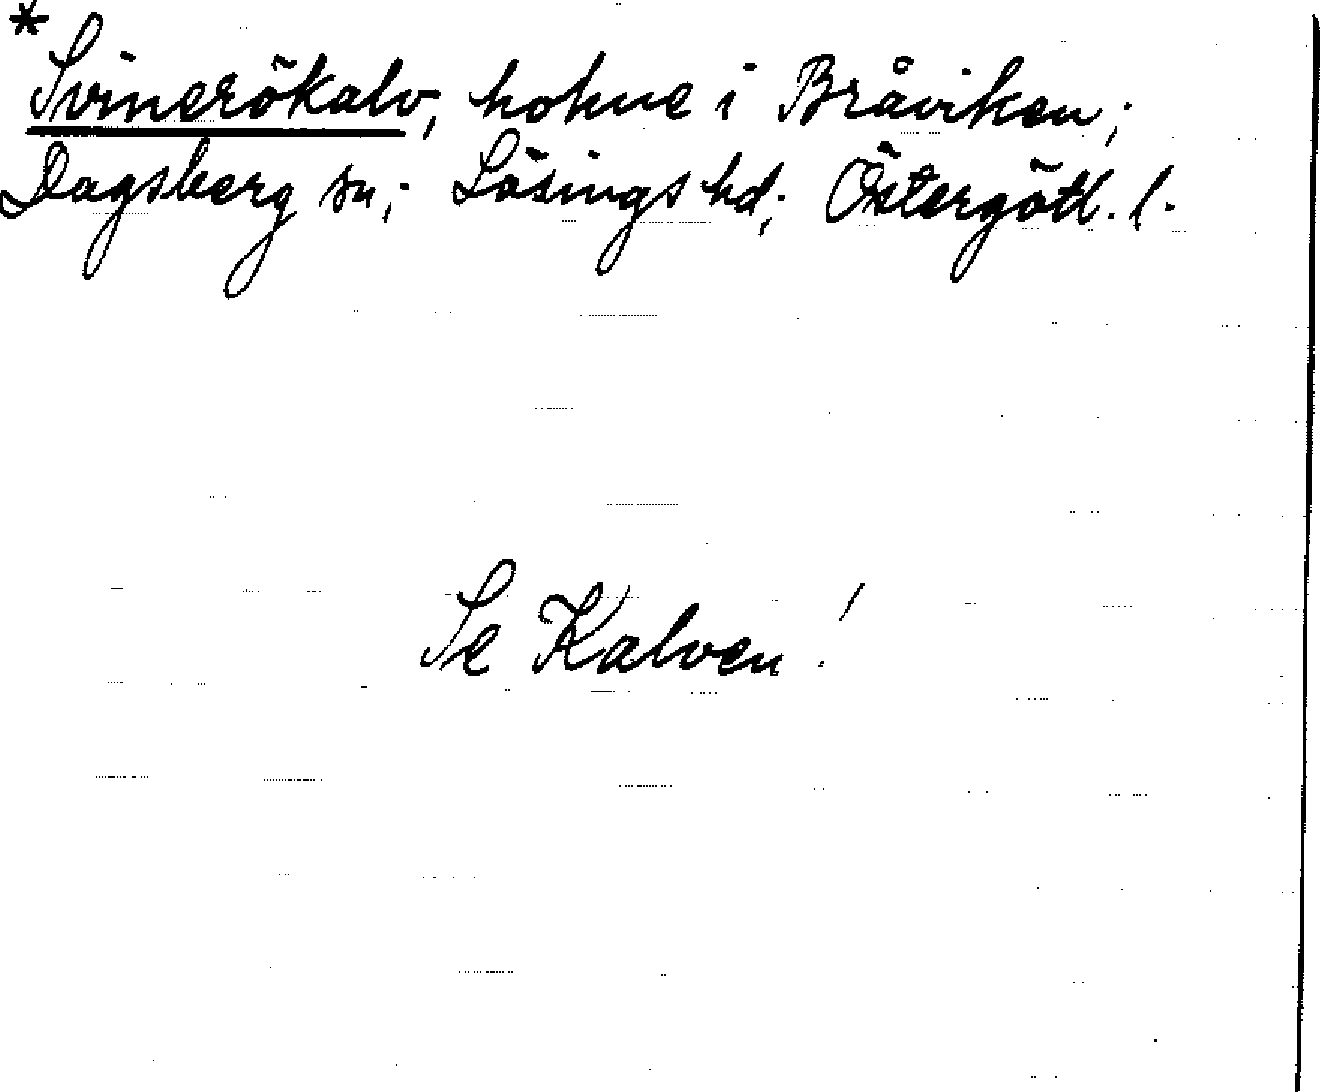 * Svinerökalv, holme i Bråviken;
Dagsberg sn; Lösings hd; Östergötl. l.
Se Kalven!